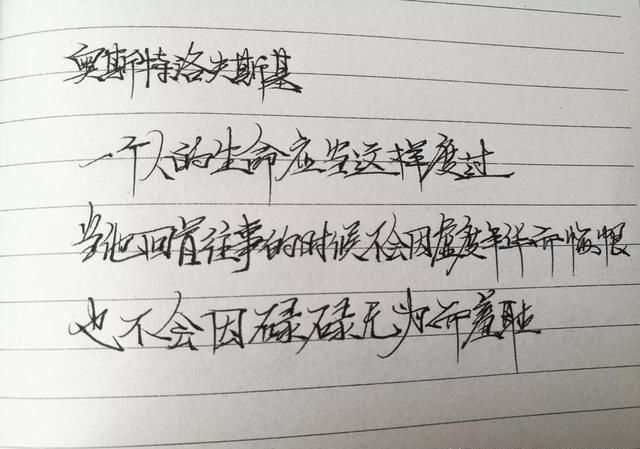 奥斯特洛夫斯基
一个人的生命应当这样度过
当他回首往事的时候不会因虚度年华而悔恨
也不会因碌碌无为而羞耻